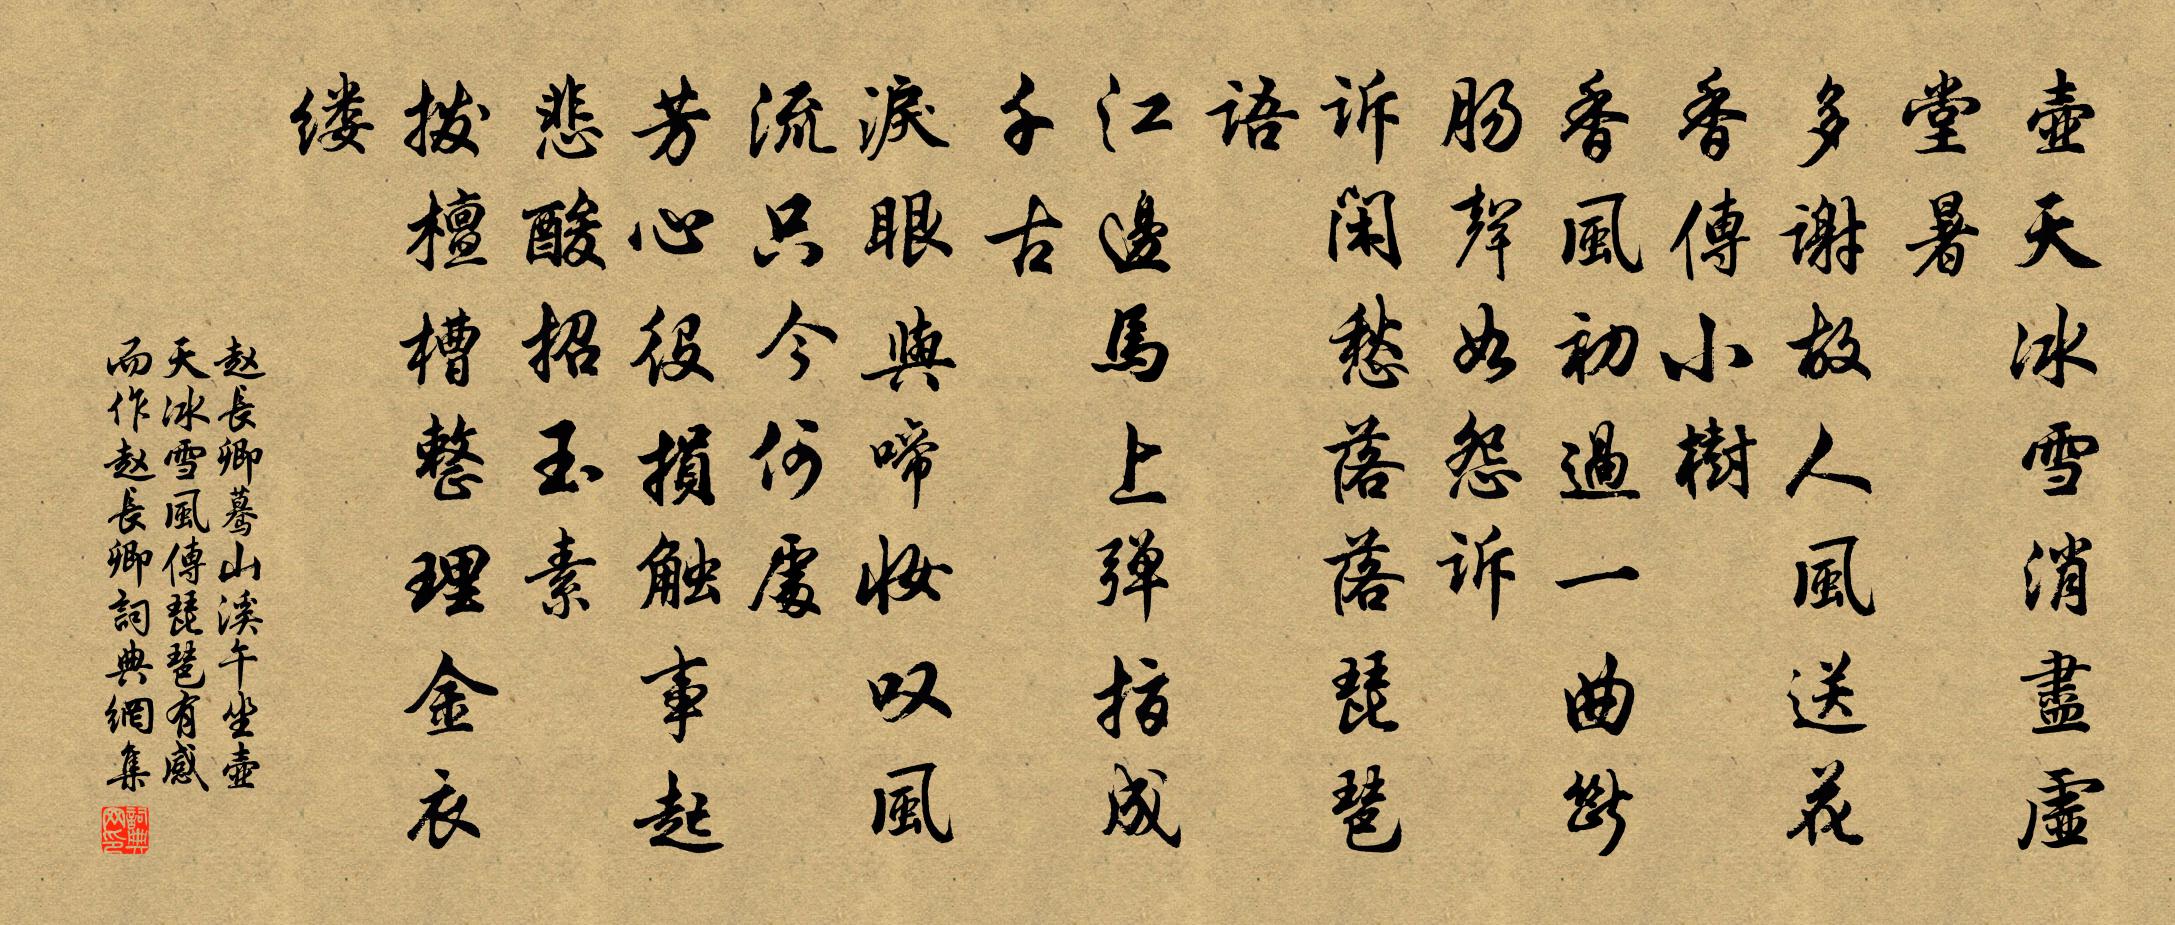 壺天冰雪消盡虛
堂暑
多謝故人風送花
香傳小樹
香風初過一曲斷
肠聲如怨訴
訴闲愁落落琵琶
語
江邊馬上弹指成
千古
淚眼與啼妆叹風
流只今何處
芳心役損触事起
悲酸招玉素
拨檀槽整理金衣
缕
赵長卿蓦山溪午坐壺
天冰雪風傳琵琶有感
而作赵長卿詞典網集
詞典网印